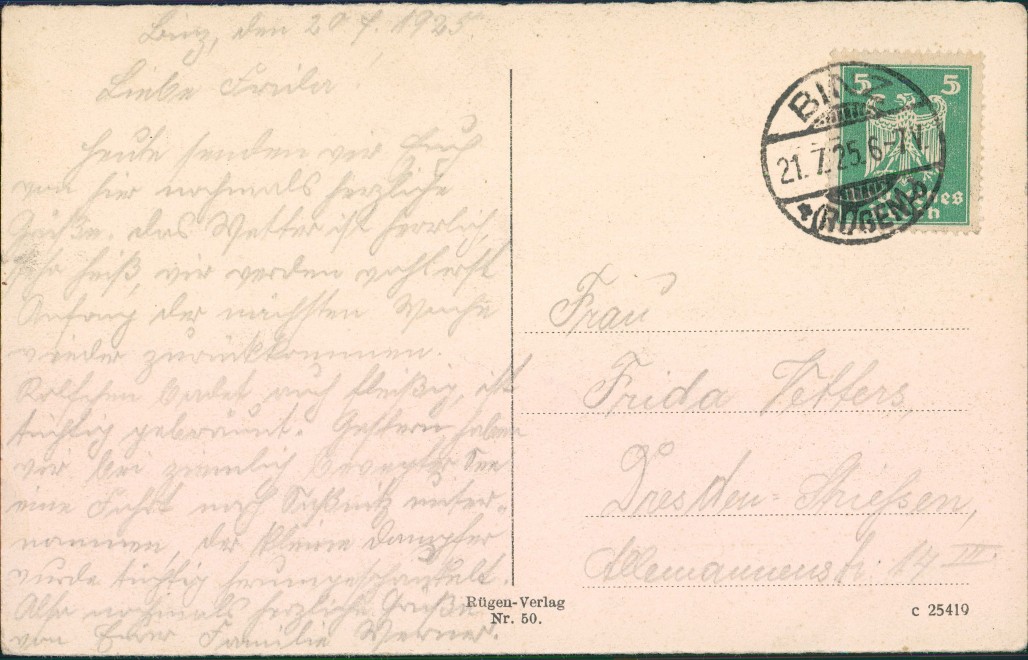 Binz, den 20 7. 1925.
Liebe Frida!
Heute senden wir Euch
von hier nochmals herzliche
Grüße. Das Wetter ist herrlich,
sehr heiß, wir werden wohl erst
Anfang der nächsten Woche
wieder zurückkommen.
Rolfchen badet auch fleißig, ist
tüchtig gebräunt. Gestern haben
wir bei ziemlich bewegter See
eine Fahrt nach Saßnitz unter-
nommen, der kleine Dampfer
wurde tüchtig herumgeschaukelt.
Also nochmals herzliche Grüße
von Eurer Familie Werner.
5 5
BINZ
21.7.25. 6-7 N.
* (RÜGEN) b
Frau
Frida Vetters,
Dresden-Striessen,
Allemannenstr. 14 III
Rügen-Verlag
Nr. 50.
c 25419